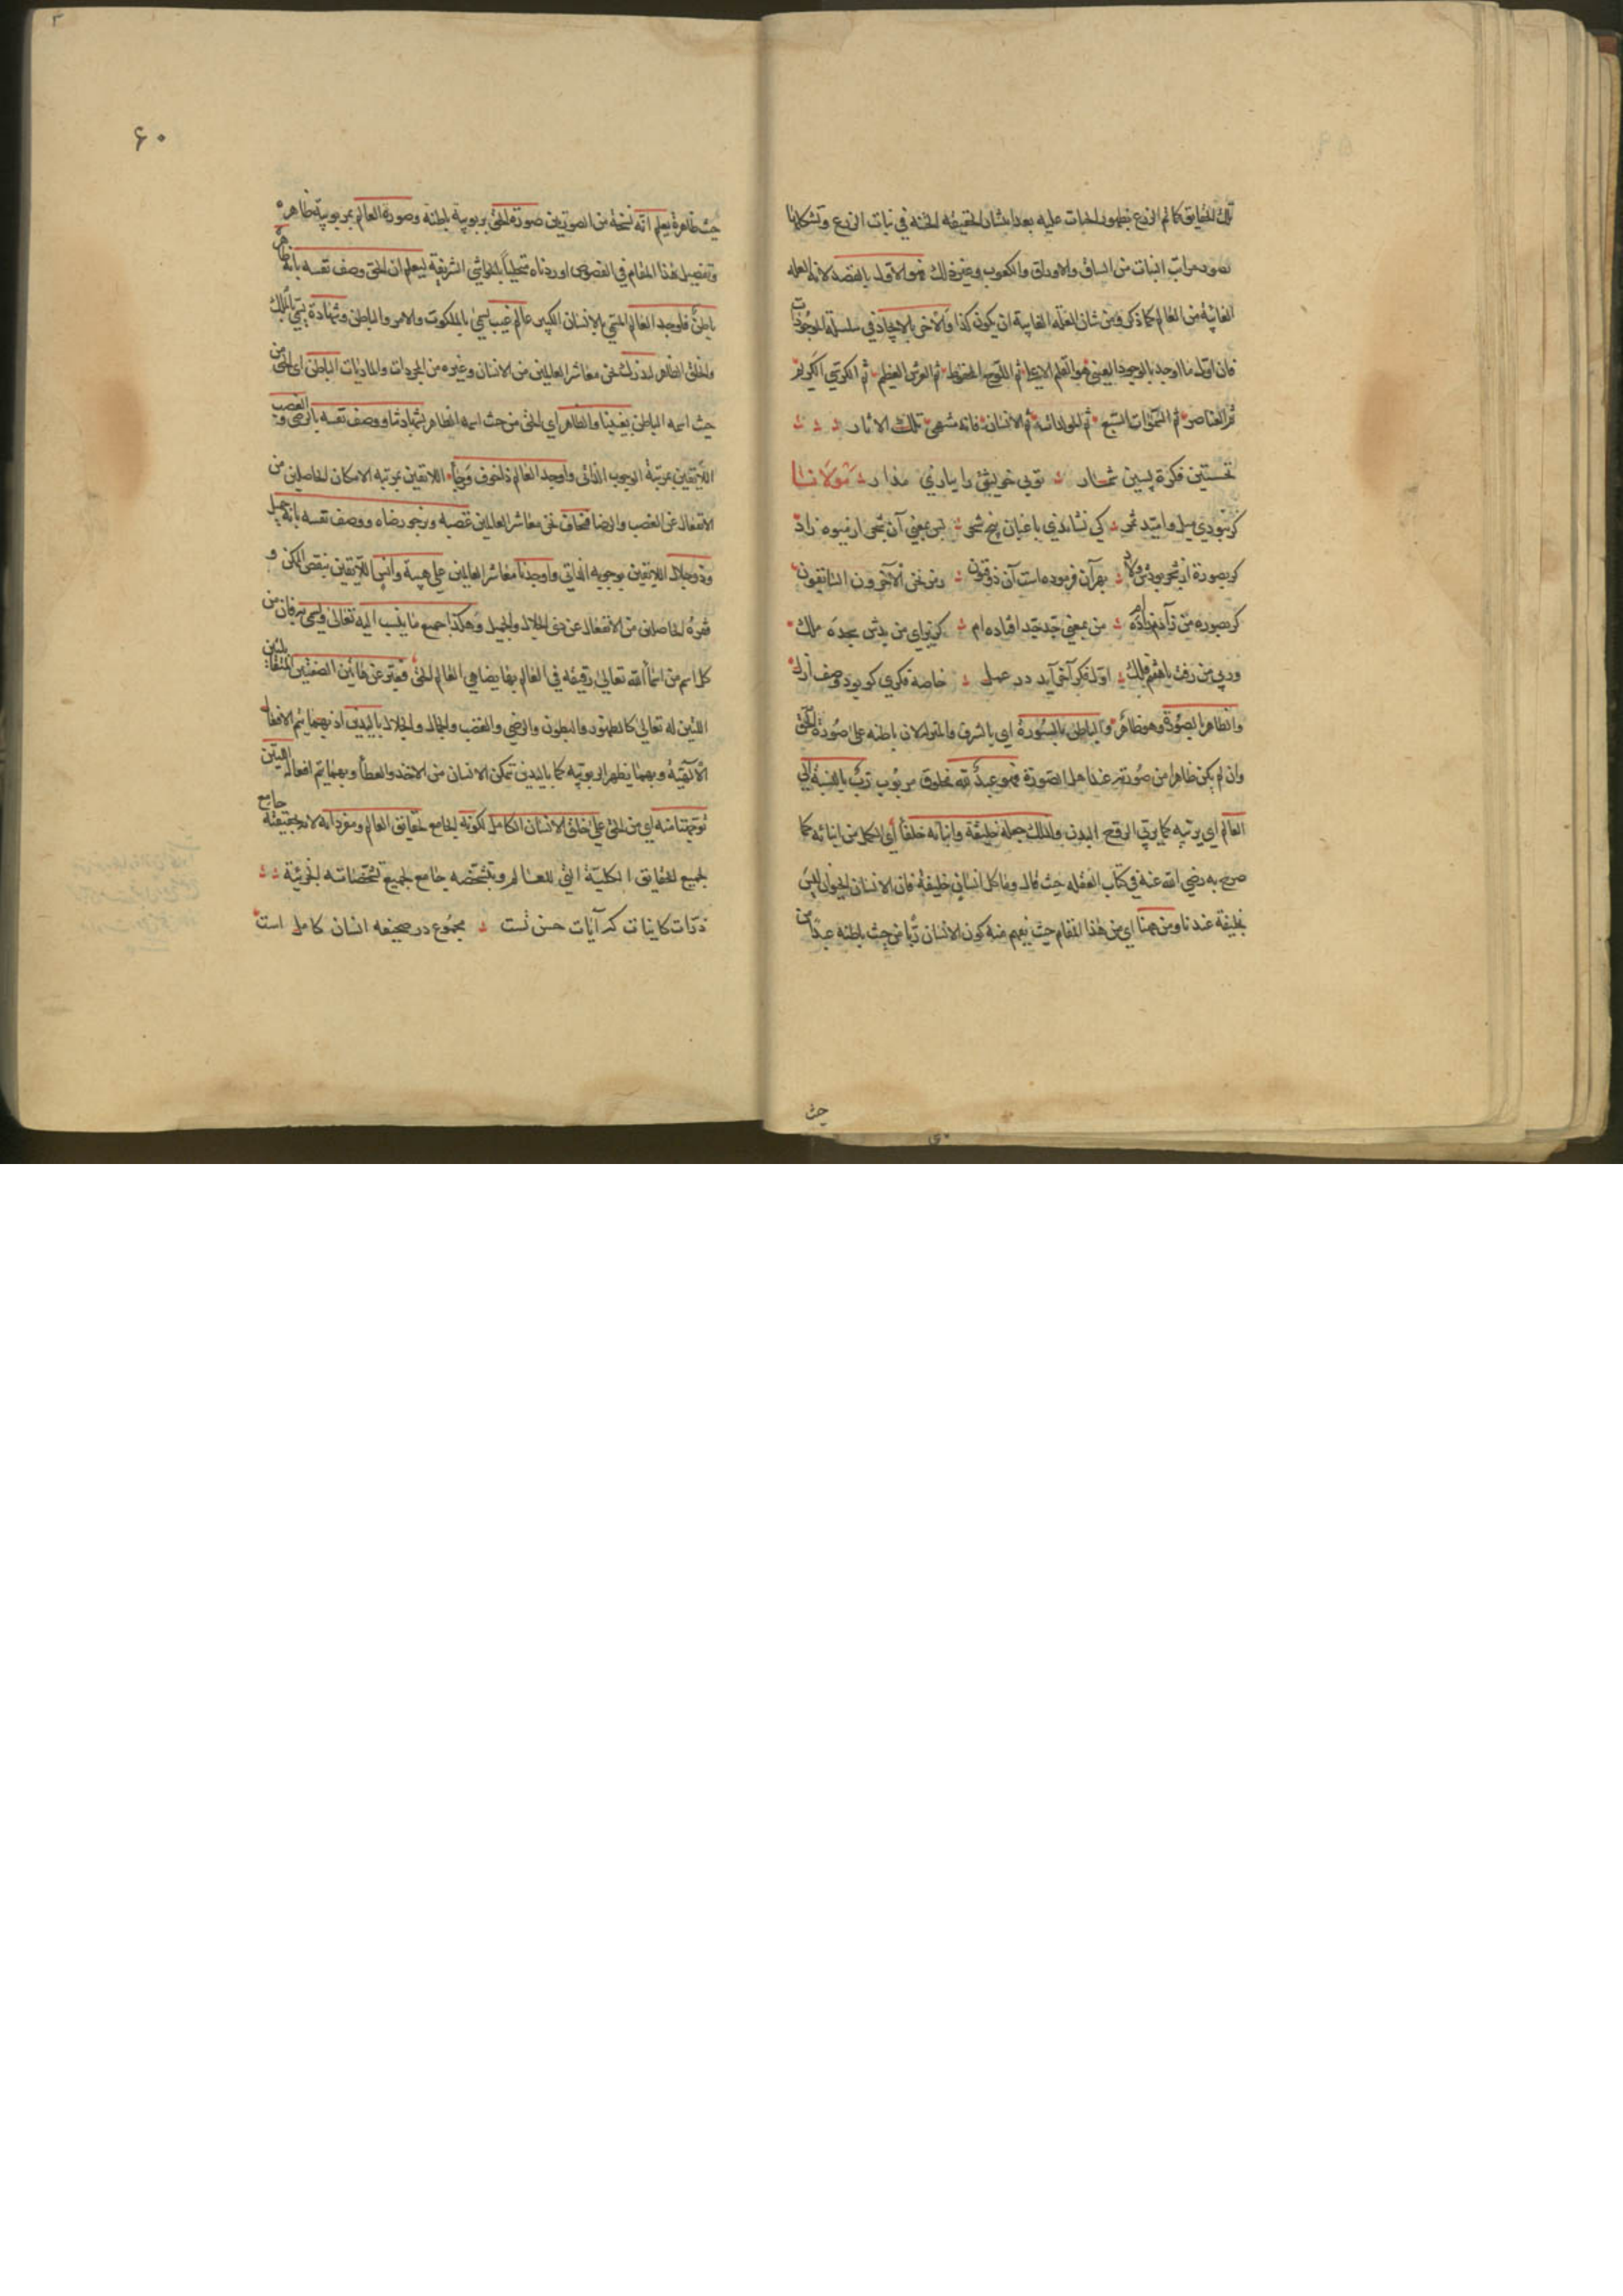 تلك الحقايق كما تم الزرع بظهور الحبات عليه بعد انبثاث الحقيقة الحبّة في نبات الزرع وتشكلها
بصور مراتب النبات من الساق والاوراق والكعوب وغير ذلك فهو الاول بالقصد لانه العلة
الغائية من العالم كما ذكر ومن شان العلة الغايية ان يكون كذا والآخر بالايجاد في سلسلة الموجودات
فان اول ما اوجد بالوجود العيني هو القلم الاعلى ثم اللوح المحفوظ ثم العرش العظيم ثم الكرسي الكريم
ثم العناصر ثم السموات السبع ثم المولدات ثم الانسان فانه منتهى تلك الاثار
نخستين فكرة پسين شمار تويى خويشتن را ببازي مدار مولانا
گر نبودي ميل واميد ثمر كي نشاندي باغبان بيخ شجر پس بمعني آن شجر از ميوه زاد
گر بصورة از شجر بودش ولاد بهر آن فرموده است آن ذو فنون رمز نحن الآخرون السابقون
گر بصورة من زآدم زاده ام من بمعني جد جد افتاده ام كز براي من بدش سجده ملك
وز پي من رفت باهفتم فلك اول فكر آخر آيد در عمل خاصه فكري كو بود وصف ازل
والظاهر بالصورة وهو ظاهر والباطن بالسورة اي بالشرف والمنزلة لان باطنه على صورة الحق
وان لم يكن ظاهرا من صورته عند اهل الصورة فهو عبدٌ لله مخلوق مربوب ربٌّ بالنسبة الى
العالم اي يربّيه كما يربّي الروح البدن ولذلك جعله خليفة وابناءه خلفاً أي الكمل من ابنائه كما
صرح به رضي الله عنه في كتاب العقلة حيث قال وما كل انسان خليفة فان الانسان الحيوان ليس
بخليفة عندنا ومن هنا اي من هذا المقام حيث يفهم منه كون الانسان ربًّا من حيث باطنه عبدًا من
حيث
۶۰
حيث ظاهره يعلم انّه نسخة من الصورتين صورة الحق بربوبية باطنه وصورة العالم بمربوبية ظاهره
وتفصيل هذا المقام في الفصوص اوردناه متحلياً بالحواشي الشريفة ليعلم ان الحق وصف نفسه بانه ظاهر
باطنٌ فاوجد العالم المسمى بالانسان الكبير عالم غيب يسمى بالملكوت والامر والباطن وشهادة يسمى بالملك
والخلق الظاهر لندرك نحن معاشر العالمين من الانسان وغيره من المجردات والماديات الباطن اي الحق من
حيث اسمه الباطن بغيبنا والظاهر اي الحق من حيث اسمه الظاهر بشهادتنا ووصف نفسه بالرضى والغضب
اللايقين بمرتبة الوجوب الذاتى واوجد العالم ذا خوف ورجاء اللايقين بمرتبة الامكان الحاصلين من
الانفعال عن الغضب والرضا فنخاف نحن معاشر العالمين غضبه ونرجو رضاه ووصف نفسه بانه جميل
وذو جلال اللايقين بوجوبه الذاتي واوجدنا معاشر العالمين على هيبة وانس اللآيقين بنقص الممكن و
فقره الحاصلين من الانفعال عن ذى الجلال والجميل وهكذا جميع ما ينسب اليه تعالى ويسمى به فان من
كل اسم من اسماء الله تعالى رقيقة في العالم بها يضاهي العالم الحق فعبّر عن هاتين الصفتين المتقابلتين
اللتين له تعالى كالظهور والبطون والرضى والغضب والجمال والجلال باليدين اذ بهما يتم الافعال
الآلهيّة وبهما يظهر الربوبية كما باليدين تمكن الانسان من الاخذ والعطأ وبهما تم افعاله اللتين
توجهتا منه اي من الحق على خلق الانسان الكامل لكونه الجامع لحقايق العالم ومفرداته لانه بحقيقته جامع
لجميع الحقايق الكليّة التي للعالم وبتشخّصه جامع لجميع تشخّصاته الجزئية
ذرّات كاينات كه آيات حسن تست مجموع در صحيفه انسان كامل است